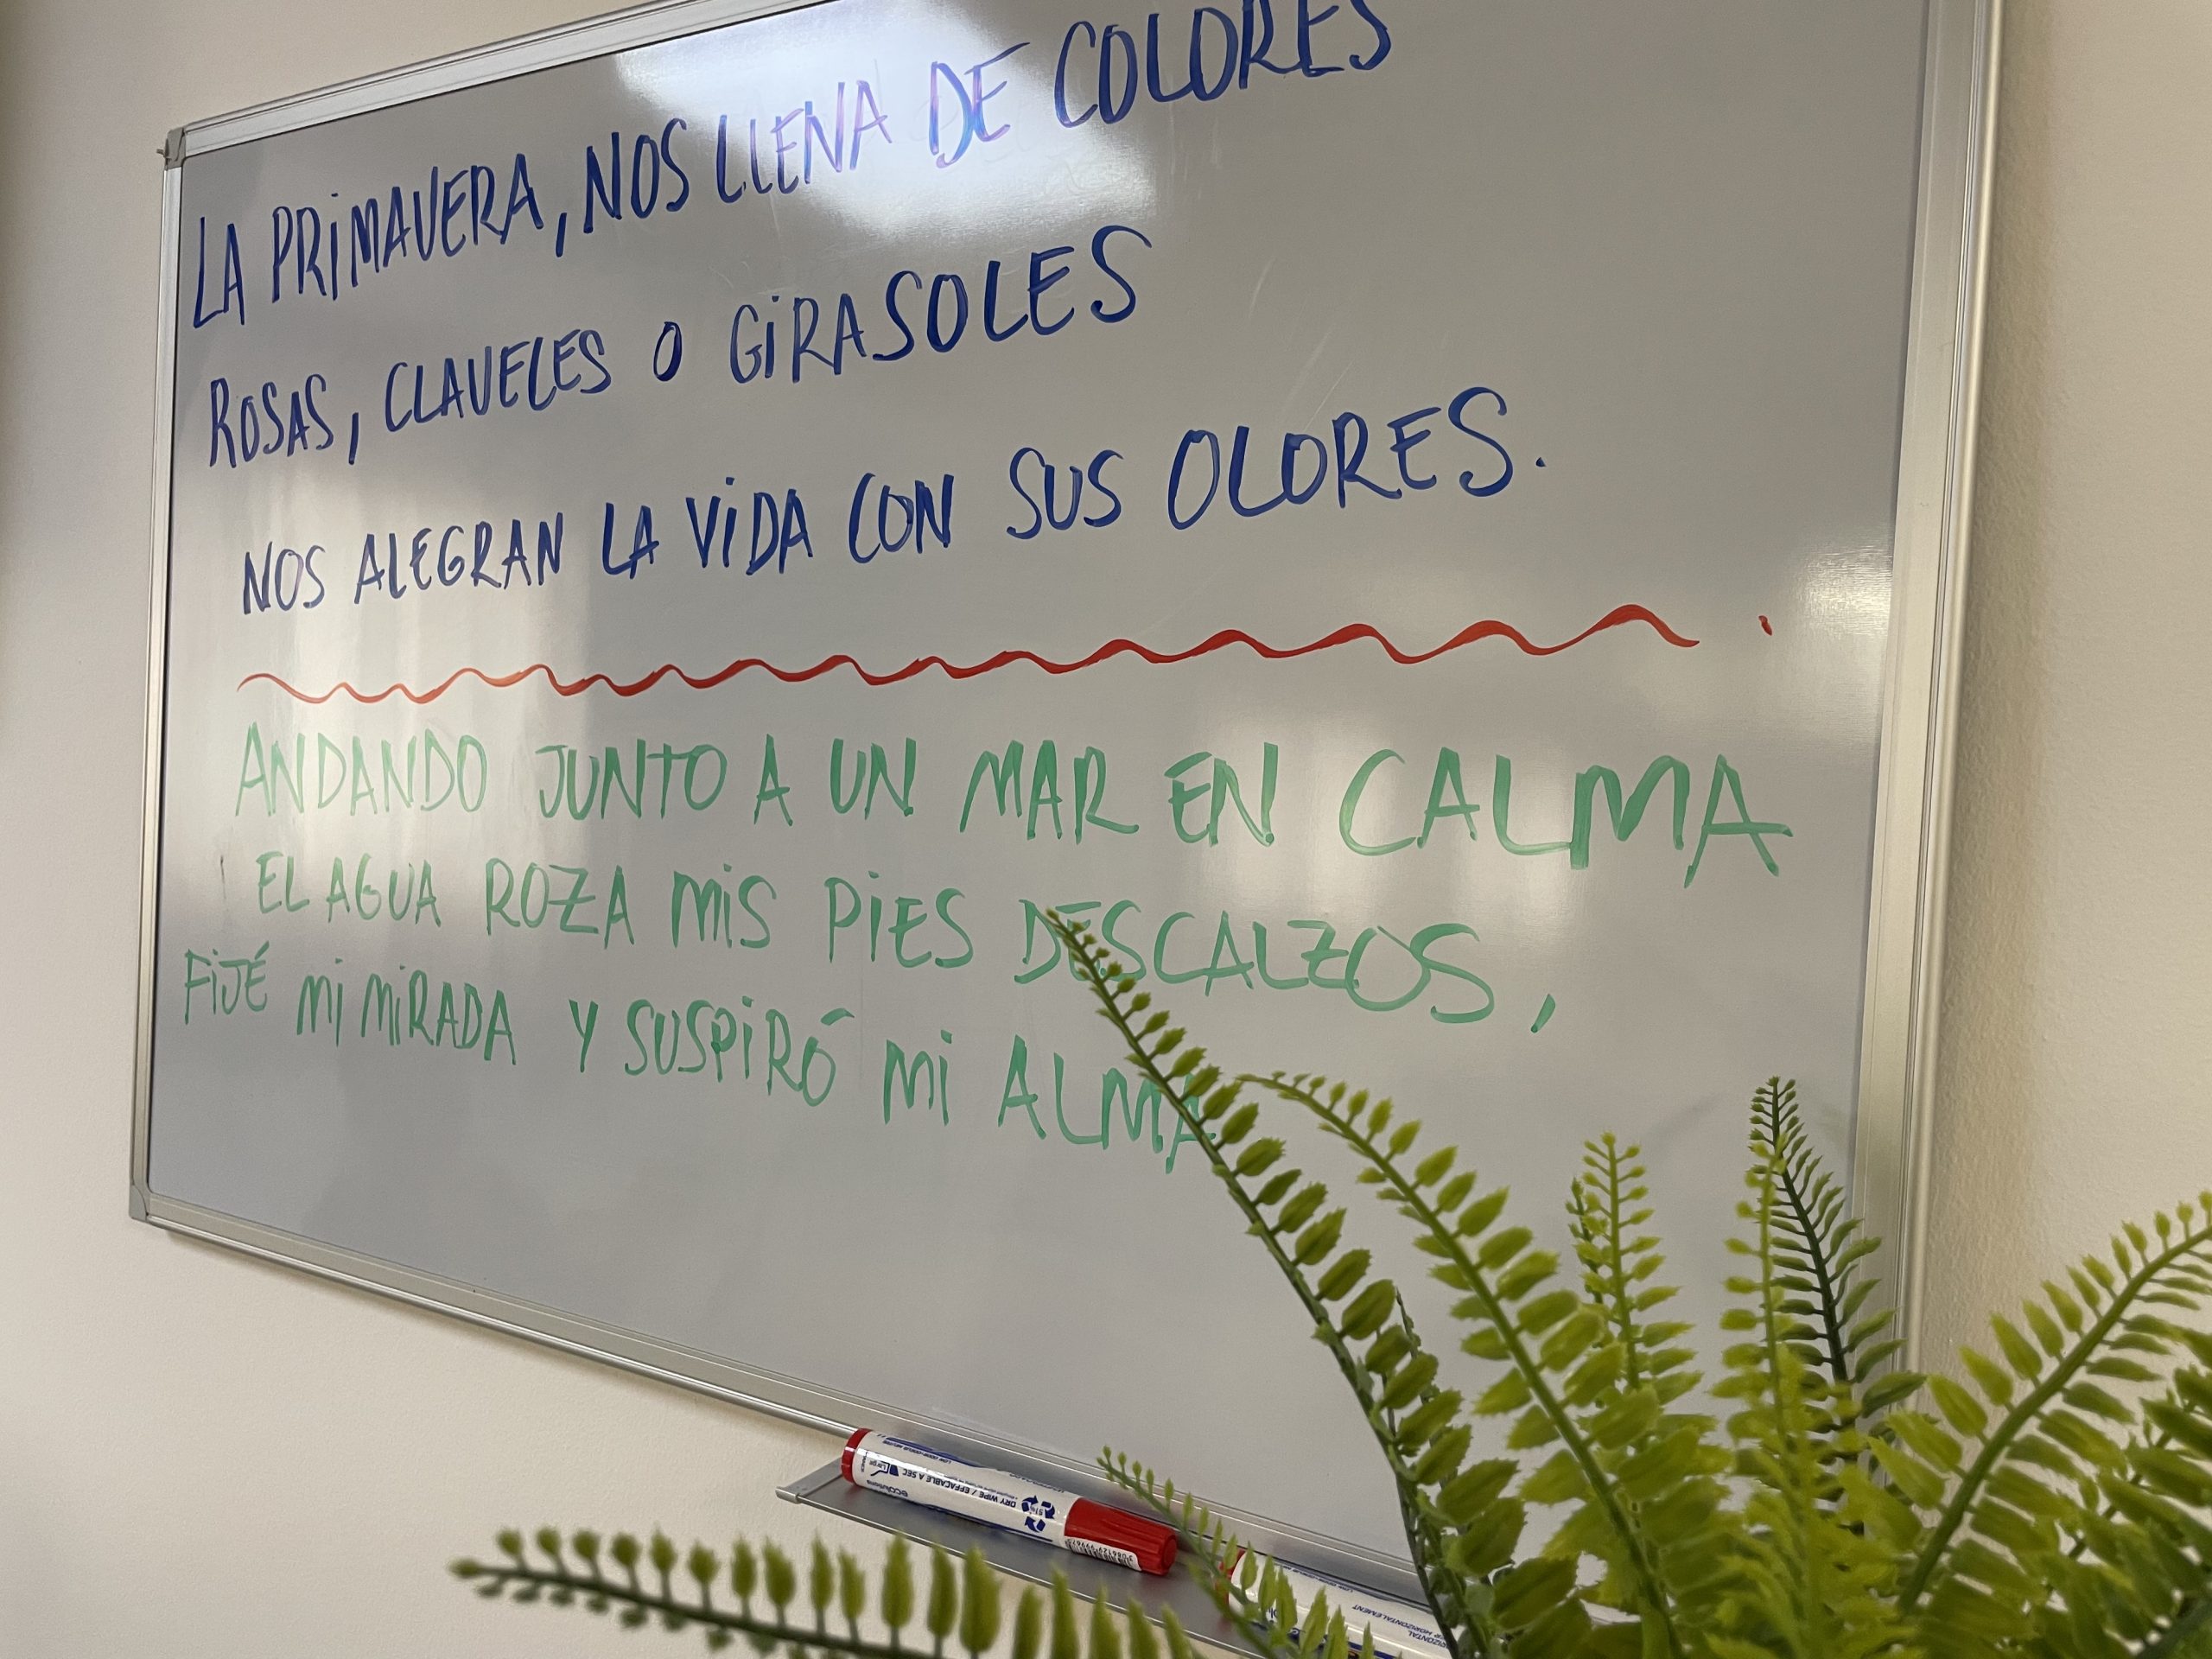 LA PRIMAVERA, NOS LLENA DE COLORES
ROSAS, CLAVELES O GIRASOLES
NOS ALEGRAN LA VIDA CON SUS OLORES.
ANDANDO JUNTO A UN MAR EN CALMA
EL AGUA ROZA MIS PIES DESCALZOS,
FIJÉ MI MIRADA Y SUSPIRÓ MI ALMA
DRY WIPE / EFFACABLE A SEC
Large